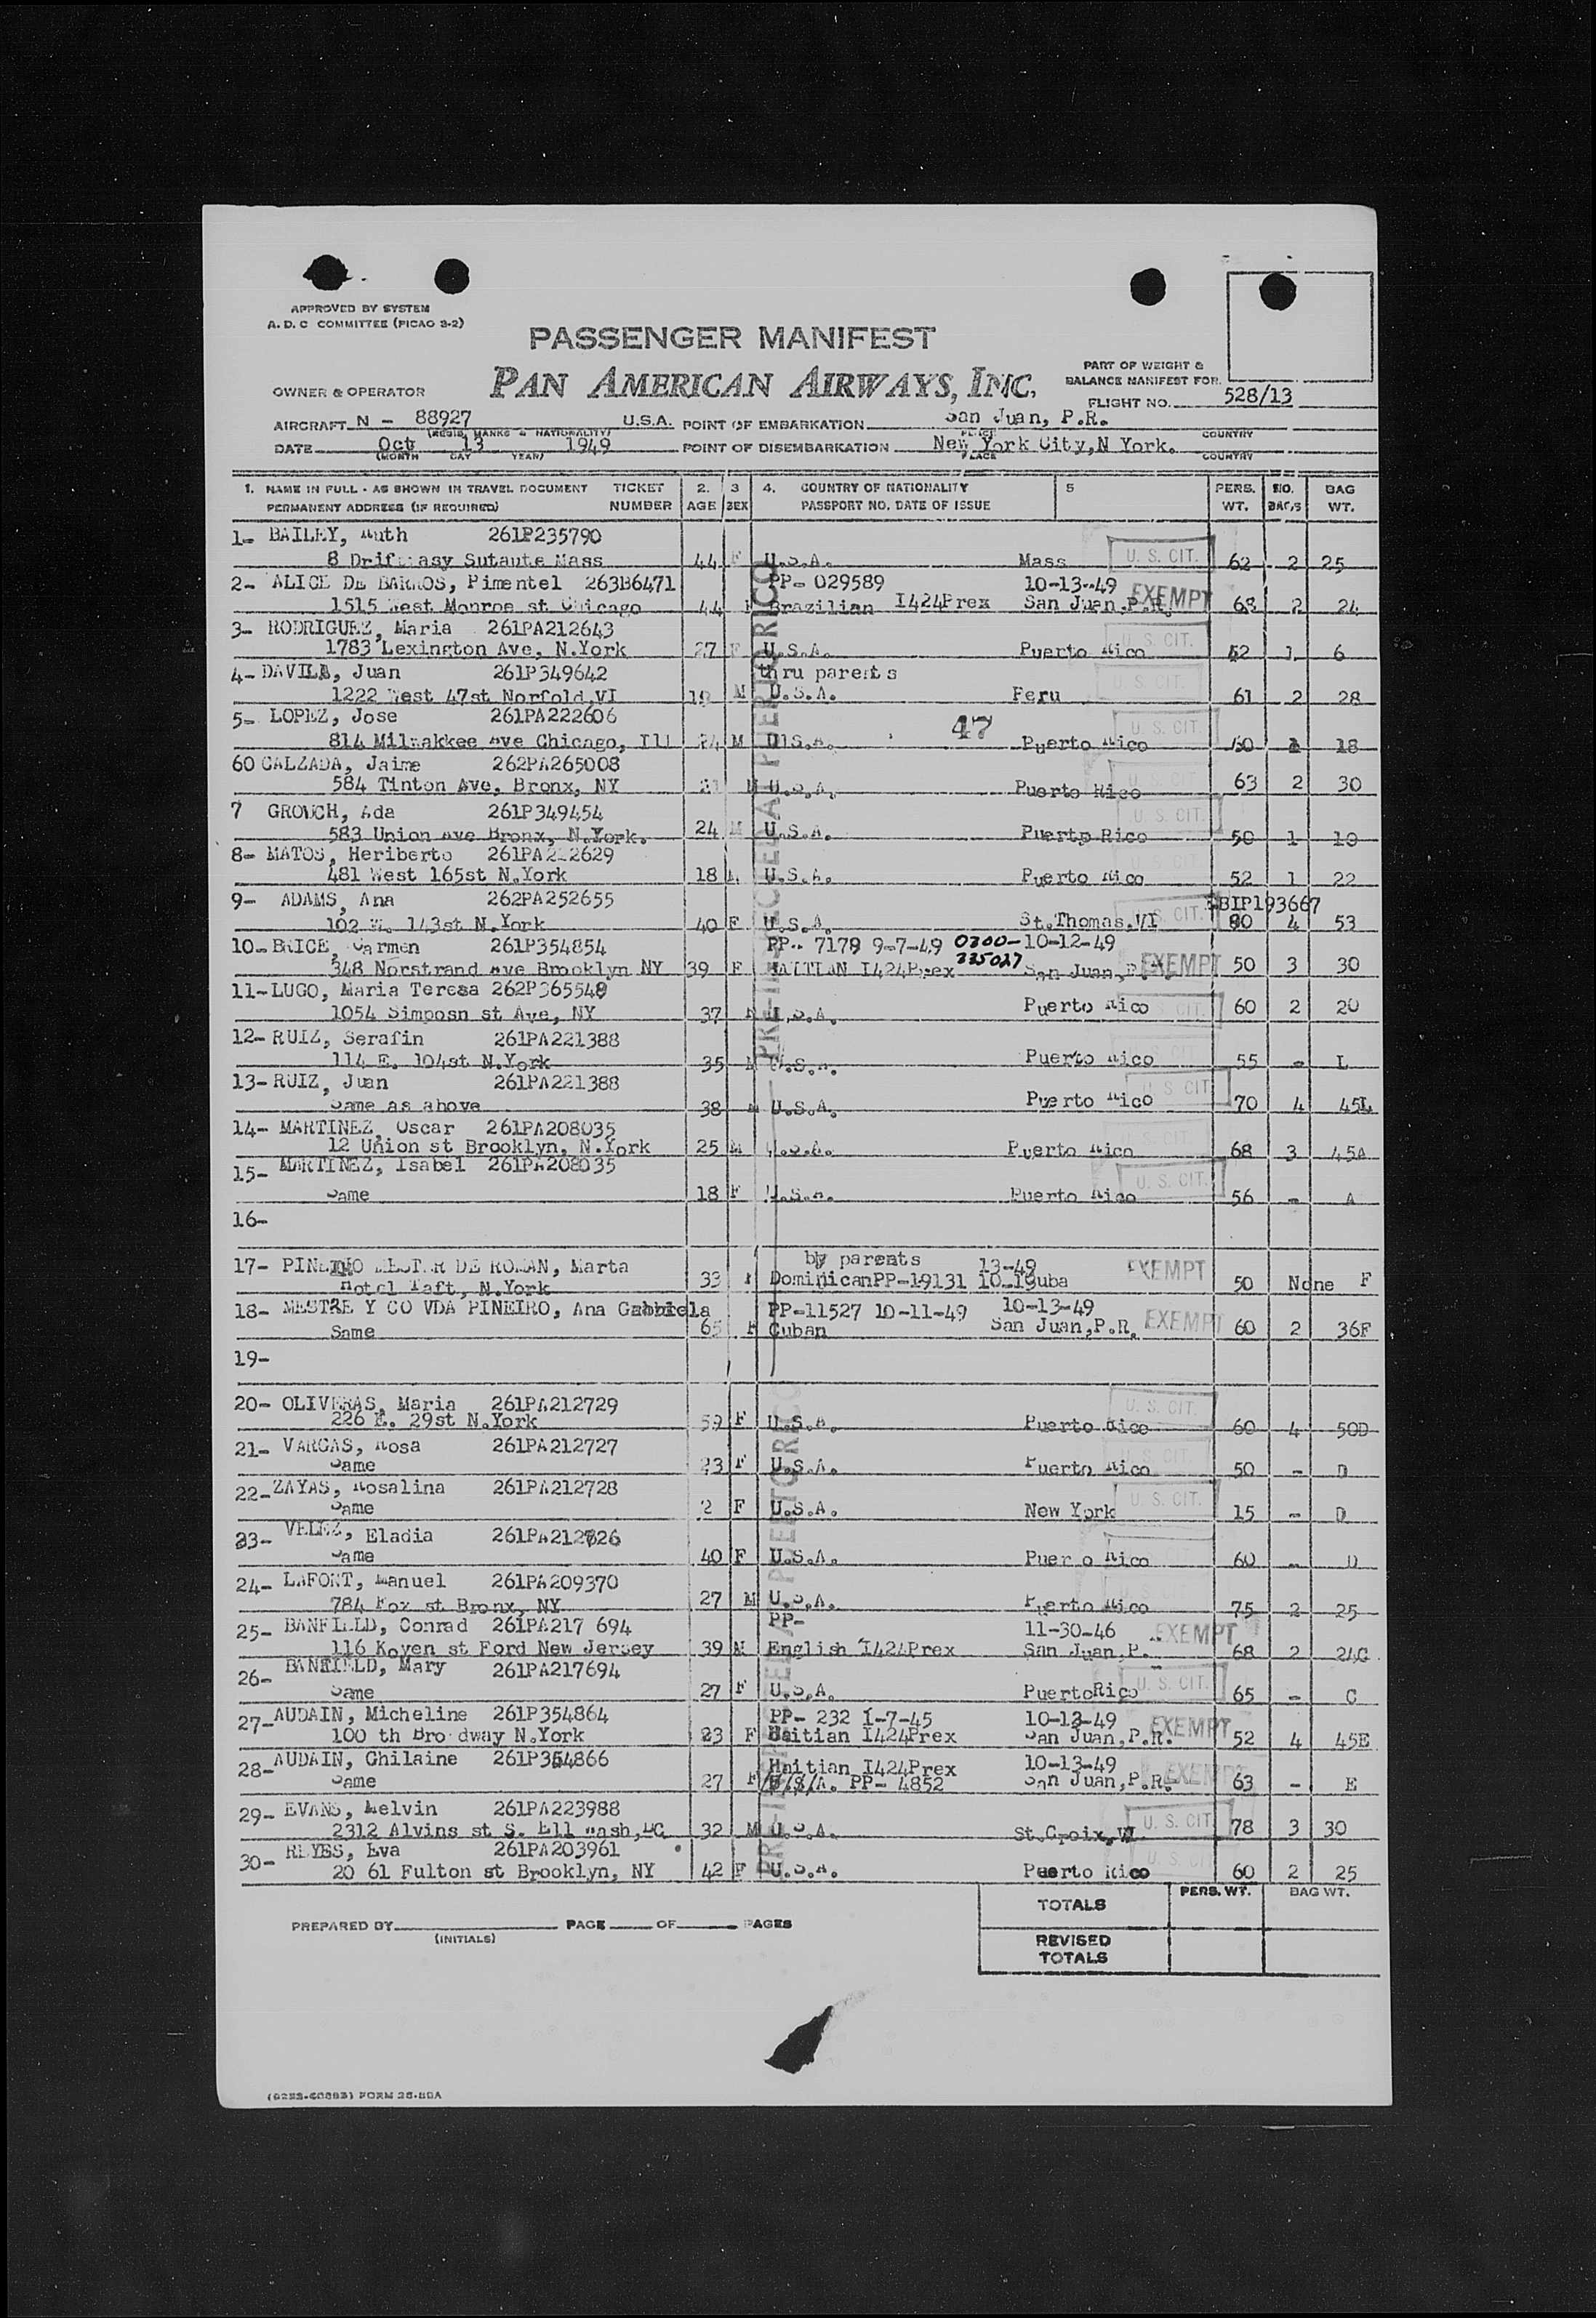 APPROVED BY SYSTEM
A. D. C COMMITTEE (PICAO 3-2)
PASSENGER MANIFEST
PART OF WEIGHT &
BALANCE MANIFEST FOR
OWNER & OPERATOR PAN AMERICAN AIRWAYS, INC.
FLIGHT NO. 528/13
AIRCRAFT N - 88927 U.S.A. POINT OF EMBARKATION San Juan, P.R.
(REGIS. MARKS & NATIONALITY) PLACE COUNTRY
DATE Oct 13 1949 POINT OF DISEMBARKATION New York City,N York.
(MONTH DAY YEAR) PLACE COUNTRY
1. NAME IN FULL - AS SHOWN IN TRAVEL DOCUMENT TICKET 2. 3 4. COUNTRY OF NATIONALITY 5 PERS. NO. BAG
PERMANENT ADDRESS (IF REQUIRED) NUMBER AGE SEX PASSPORT NO. DATE OF ISSUE WT. BAGS WT.
1- BAILEY, Ruth 261P235790
8 Sutaute Mass 44 F U.S.A. Mass U. S. CIT. 62 2 25
2- ALICE DE BARROS, Pimentel 263B6471 PP- 029589 10-13-49
1515 West Monroe st Chicago 44 F Brazilian I424Prex San Juan,P.R. EXEMPT 68 2 24
3- RODRIGUEZ, Maria 261PA212643
1783 Lexington Ave, N.York 27 F U.S.A. Puerto Rico U. S. CIT. 52 1 6
4- DAVILA, Juan 261P349642 thru parents
1222 West 47st Norfold,VI 19 M U.S.A. Peru U. S. CIT. 61 2 28
5- LOPEZ, Jose 261PA222606 47
814 Milwakkee Ave Chicago, Ill 24 M U.S.A. Puerto Rico U. S. CIT. 60 1 18
60 CALZADA, Jaime 262PA265008
584 Tinton Ave, Bronx, NY 21 M U.S.A. Puerto Rico U. S. CIT. 63 2 30
7 GROUCH, Ada 261P349454
583 Union Ave Bronx, N.York. 24 M U.S.A. Puertp Rico U. S. CIT. 50 1 10
8- MATOS, Heriberto 261PA222629
481 West 165st N.York 18 M U.S.A. Puerto Rico U. S. CIT. 52 1 22
9- ADAMS, Ana 262PA252655 SBIP193667
102 W. 143st N.York 40 F U.S.A. St.Thomas.VI U. S. CIT. 80 4 53
10- BRICE, Carmen 261P354854 PP- 7178 9-7-49 0300- 10-12-49
348 Norstrand Ave Brooklyn NY 39 F HAITIAN I424Prex 235027 San Juan,P.R. EXEMPT 50 3 30
11- LUGO, Maria Teresa 262P365548
1054 Simposn st Ave, NY 37 U.S.A. Puerto Rico U. S. CIT. 60 2 20
12- RUIZ, Serafin 261PA221388
114 E. 104st N.York 35 M U.S.A. Puerto Rico U. S. CIT. 55 - L
13- RUIZ, Juan 261PA221388
Same as above 38 M U.S.A. Puerto Rico U. S. CIT. 70 4 45L
14- MARTINEZ, Oscar 261PA208035
12 Union st Brooklyn, N.York 25 M U.S.A. Puerto Rico U. S. CIT. 68 3 45A
15- MARTINEZ, Isabel 261PA208035
Same 18 F U.S.A. Puerto Rico U. S. CIT. 56 - A
16-
17- PINEIRO MESTRE DE ROMAN, Marta by parents 13-49
Hotel Taft, N.York 33 F DominicanPP-19131 10-19uba EXEMPT 50 None F
18- MESTRE Y CO VDA PINEIRO, Ana Gabbriela PP-11527 10-11-49 10-13-49
Same 65 F Cuban San Juan,P.R. EXEMPT 60 2 36F
19-
20- OLIVERAS, Maria 261PA212729
226 E. 29st N.York 59 F U.S.A. Puerto Rico U. S. CIT. 60 4 50D
21- VARGAS, Rosa 261PA212727
Same 23 F U.S.A. Puerto Rico U. S. CIT. 50 - D
22- ZAYAS, Rosalina 261PA212728
Same 2 F U.S.A. New York U. S. CIT. 15 - D
23- VELEZ, Eladia 261PA212726
Same 40 F U.S.A. Puer o Rico 60 - D
24- LAFONT, Manuel 261PA209370
784 Fox st Bronx, NY 27 M U.S.A. Puerto Rico U. S. CIT. 75 2 25
25- BANFIELD, Conrad 261PA217 694 PP- 11-30-46
116 Koven st Ford New Jersey 39 M English I424Prex San Juan,P. EXEMPT 68 2 24C
26- BANFIELD, Mary 261PA217694
Same 27 F U.S.A. PuertoRico U. S. CIT. 65 - C
27- AUDAIN, Micheline 261P354864 PP- 232 1-7-45 10-13-49
100 th Bro dway N.York 23 F Haitian I424Prex San Juan,P.R. EXEMPT 52 4 45E
28- AUDAIN, Ghilaine 261P354866 Haitian I424Prex 10-13-49
Same 27 F U.S.A. PP- 4852 San Juan,P.R. EXEMPT 63 - E
29- EVANS, Melvin 261PA223988
2312 Alvins st S. Ell Wash,DC 32 M U.S.A. St.Croix,VI U. S. CIT. 78 3 30
30- REYES, Eva 261PA203961
20 61 Fulton st Brooklyn, NY 42 F U.S.A. Puerto Rico U. S. CIT. 60 2 25
TOTALS PERS. WT. BAG WT.
PREPARED BY PAGE OF PAGES
(INITIALS)
REVISED
TOTALS